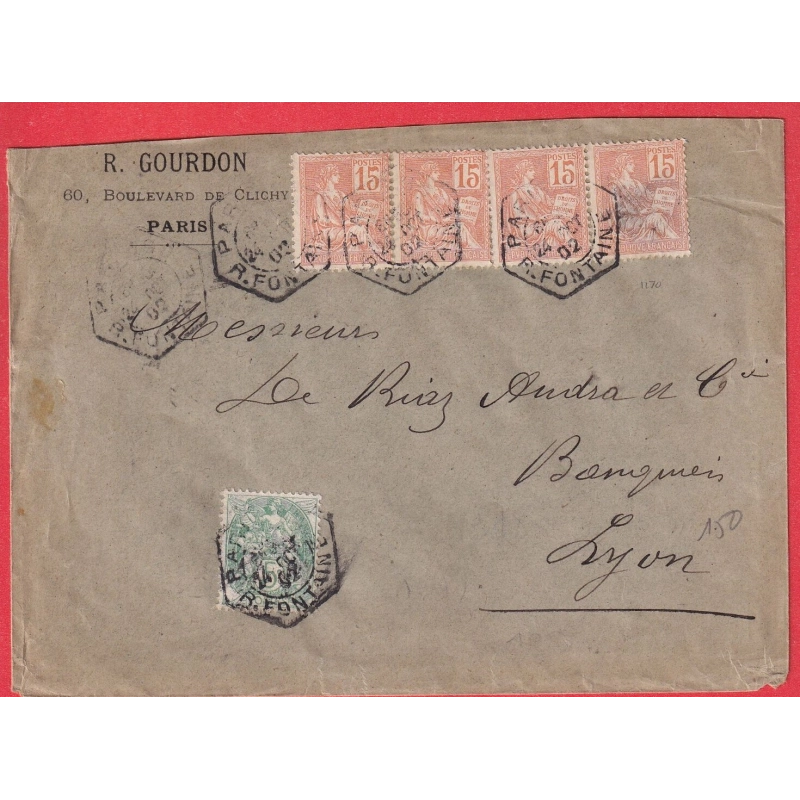 R. GOURDON
60, BOULEVARD DE CLICHY
PARIS
15 POSTES 15 POSTES 15 POSTES 15 POSTES
PARIS
24 OCT
02
R. FONTAINE
PARIS
02
R. FONTAINE
PARIS
24 OCT
02
R. FONTAINE
1170
Messieurs
De Riaz Audra et Cie
Banquiers
Lyon
150
5
R. FONTAINE